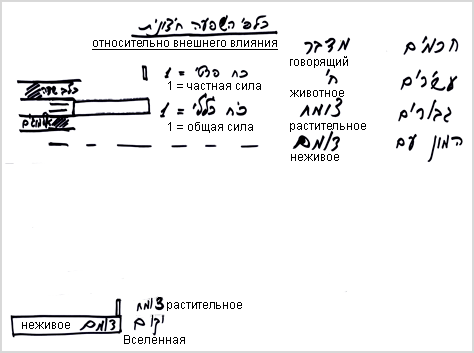 כלפי השפעה חיצונית
относительно внешнего влияния
חכמים מדבר
говорящий
עשירים חי כח פרטי = 1
1 = частная сила животное
גבורים צומח כח כללי = 1
1 = общая сила растительное
אלמוגים
המון עם דומם
неживое
צומח растительное
неживое דומם יקום
Вселенная